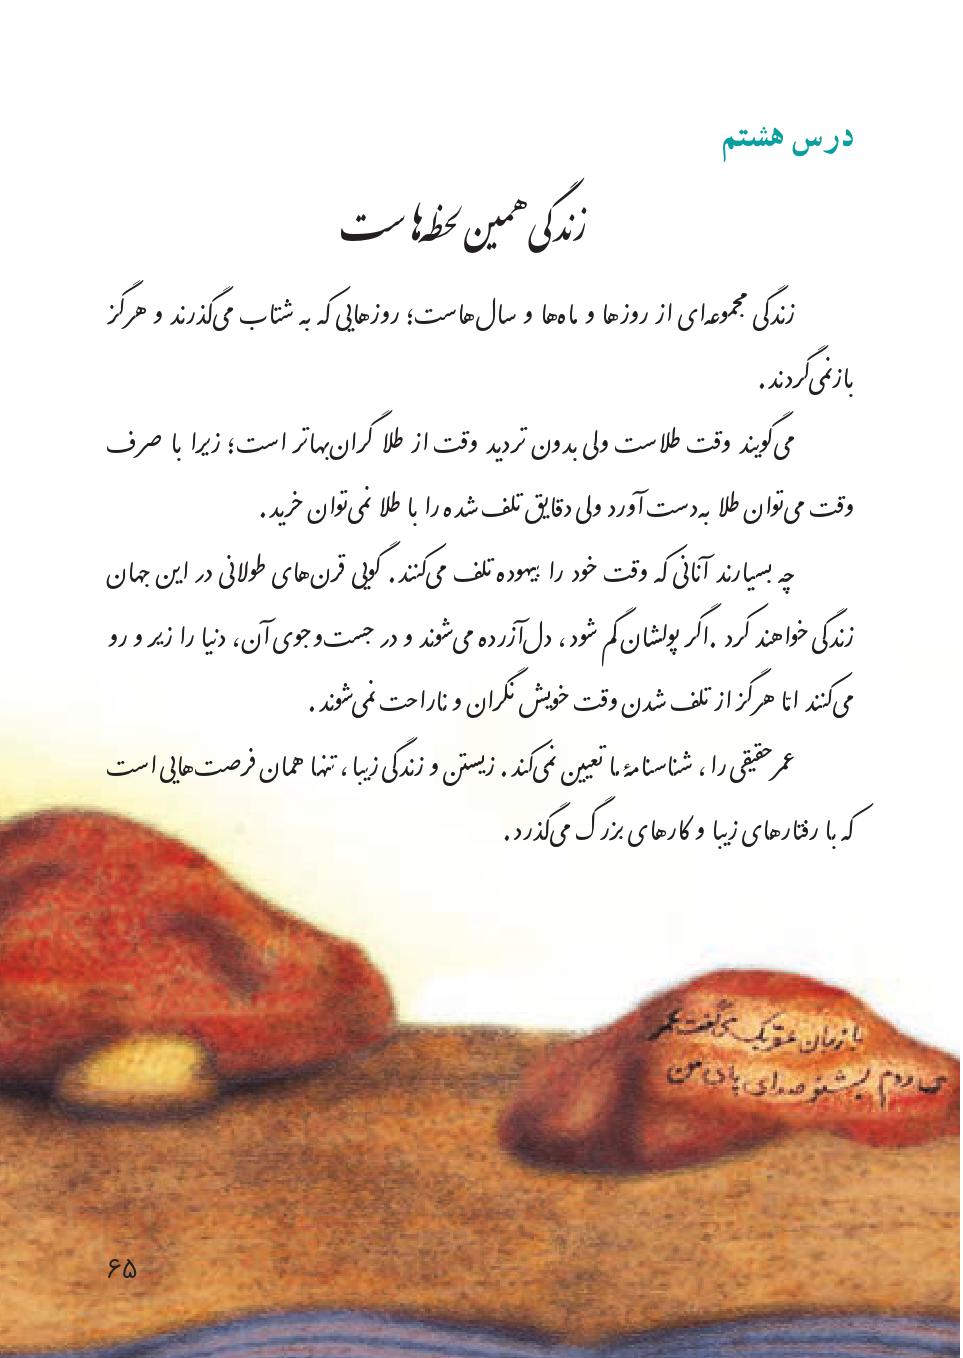 درس هشتم
زندگی همین لحظه‌هاست
زندگی مجموعه‌ای از روزها و ماه‌ها و سال‌هاست؛ روزهایی که به شتاب می‌گذرند و هرگز
بازنمی‌گردند.
می‌گویند وقت طلاست ولی بدون تردید وقت از طلا گران‌بهاتر است؛ زیرا با صرف
وقت می‌توان طلا به‌دست آورد ولی دقایق تلف شده را با طلا نمی‌توان خرید.
چه بسیارند آنانی که وقت خود را بیهوده تلف می‌کنند. گویی قرن‌های طولانی در این جهان
زندگی خواهند کرد. اگر پولشان گم شود، دل‌آزرده می‌شوند و در جست‌وجوی آن، دنیا را زیر و رو
می‌کنند امّا هرگز از تلف شدن وقت خویش نگران و ناراحت نمی‌شوند.
عمر حقیقی را، شناسنامهٔ ما تعیین نمی‌کند. زیستن و زندگی زیبا، تنها همان فرصت‌هایی است
که با رفتارهای زیبا و کارهای بزرگ می‌گذرد.
با زبان عقربک می‌گفت عمر
می‌روم بشنو صدای پای من
۶۵